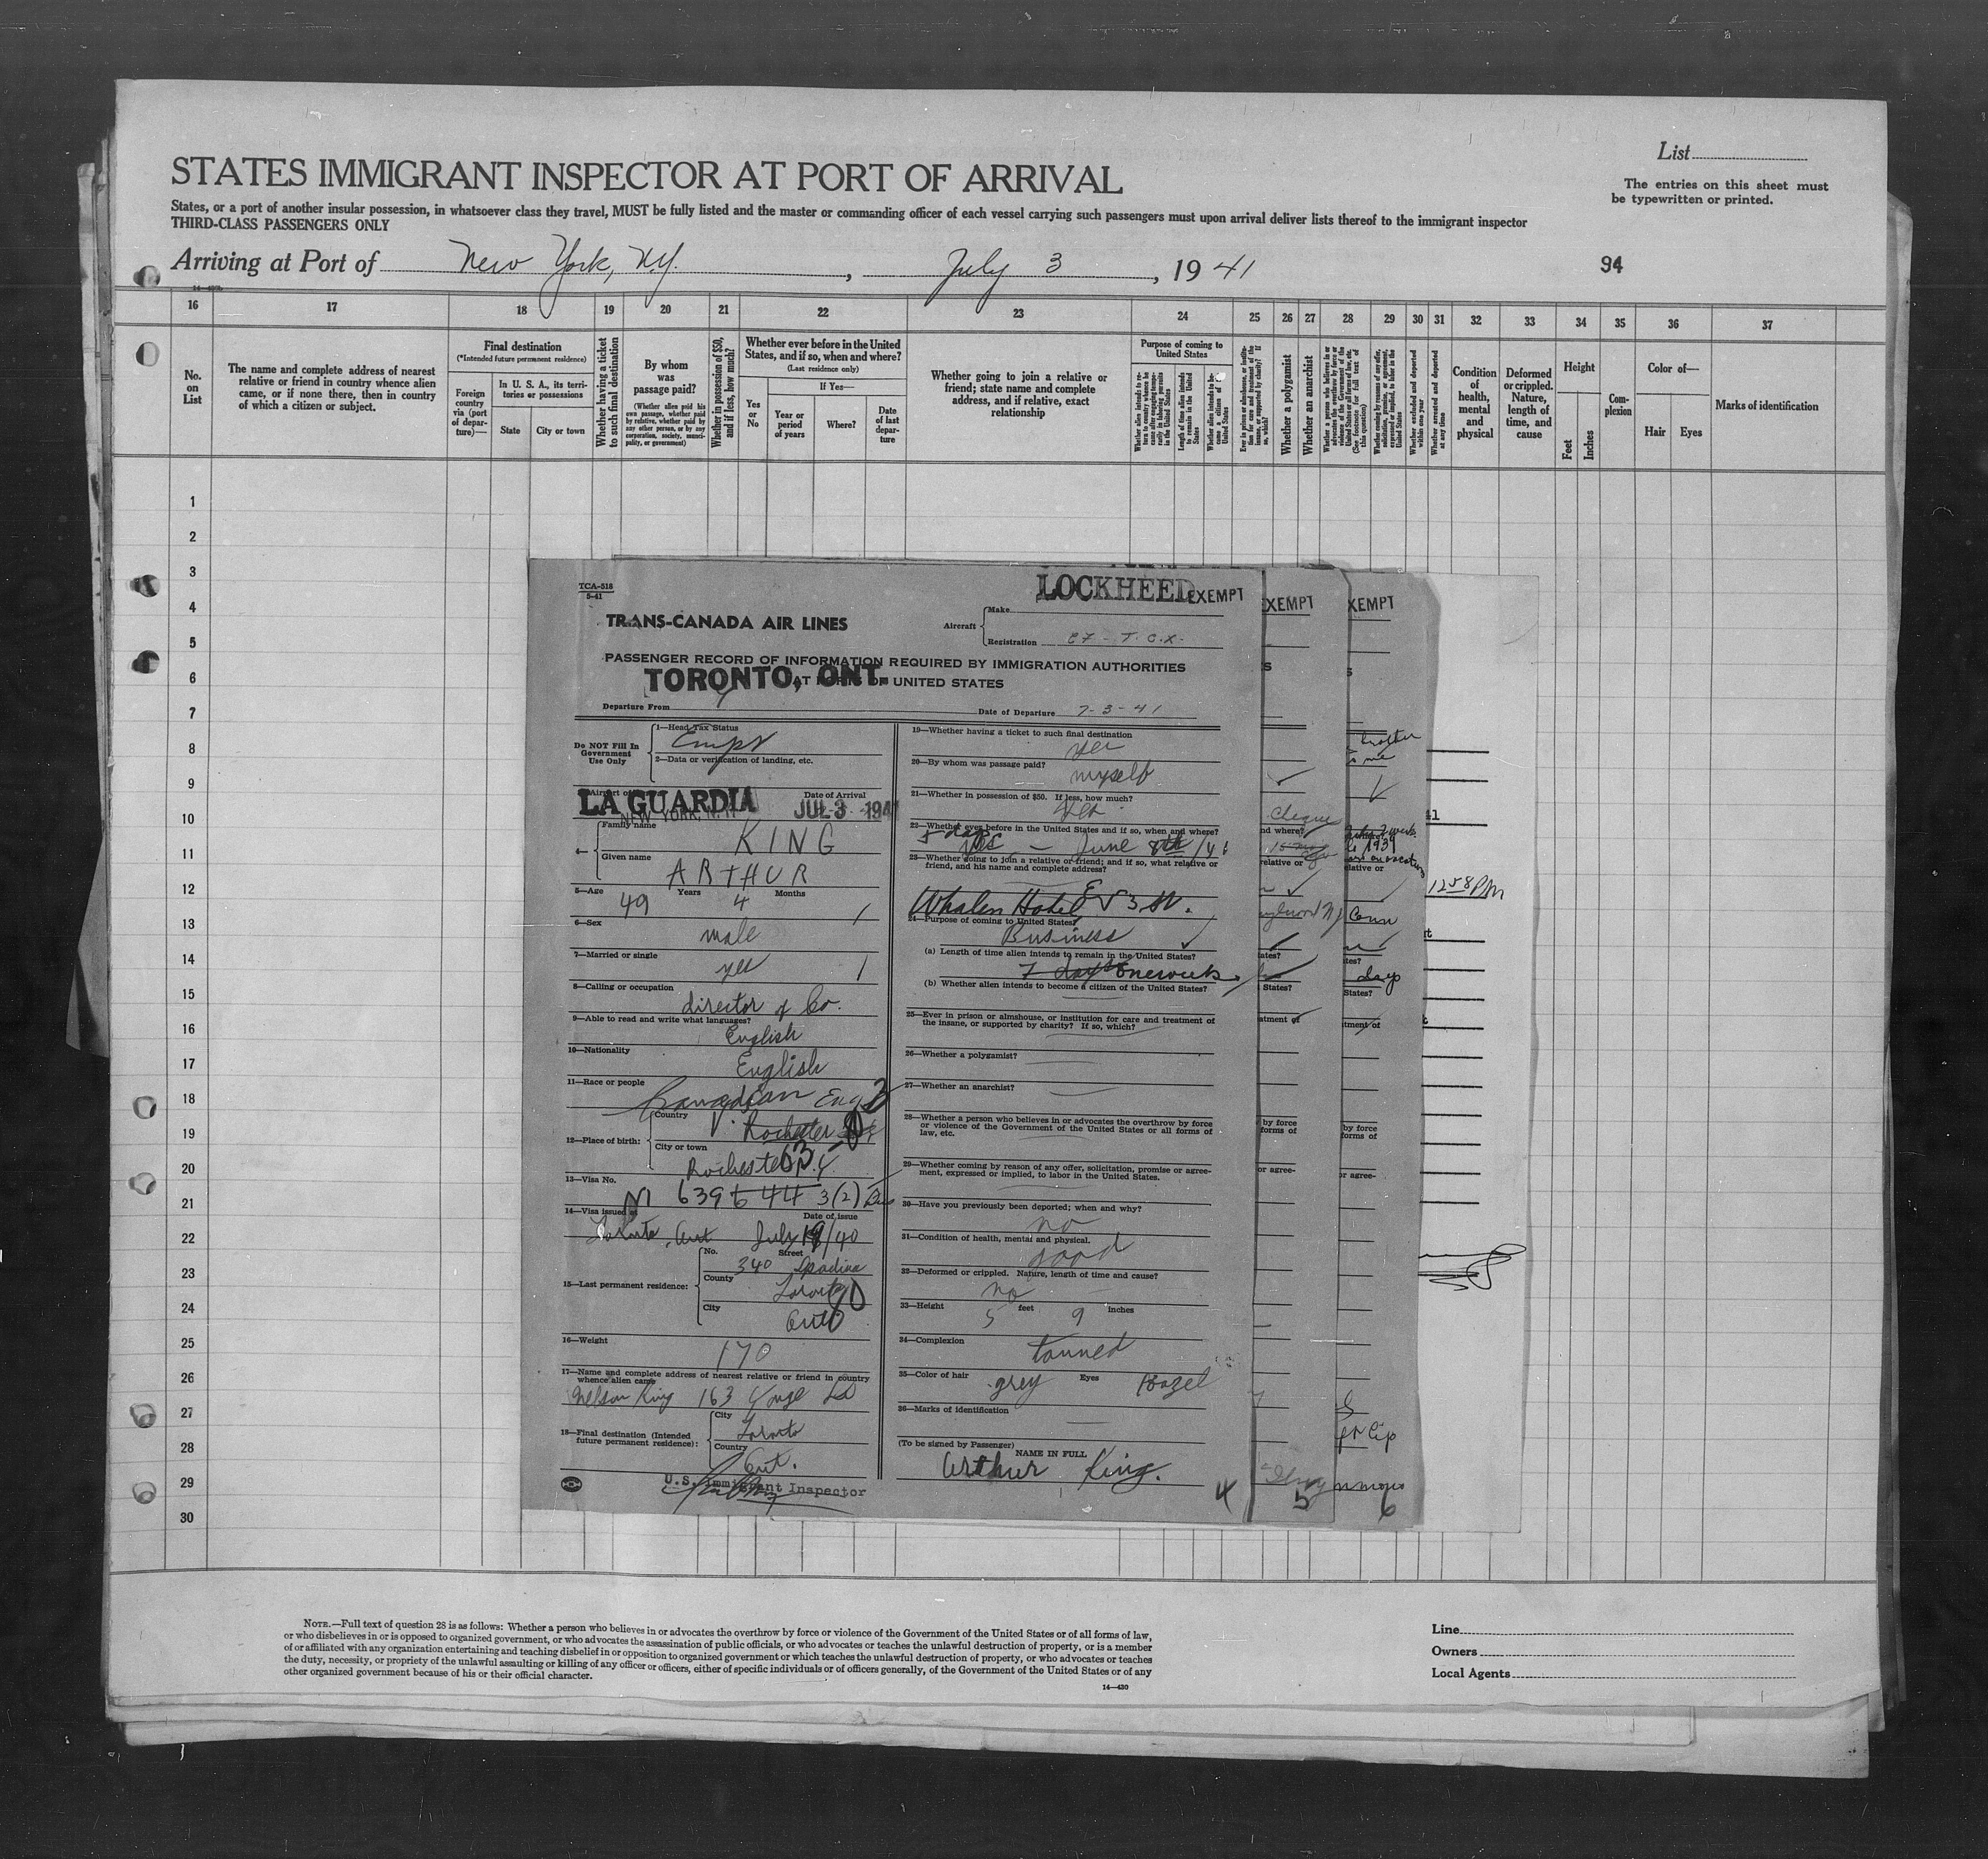 List
The entries on this sheet must
be typewritten or printed.
STATES IMMIGRANT INSPECTOR AT PORT OF ARRIVAL
States, or a port of another insular possession, in whatsoever class they travel, MUST be fully listed and the master or commanding officer of each vessel carrying such passengers must upon arrival deliver lists thereof to the immigrant inspector
THIRD-CLASS PASSENGERS ONLY
Arriving at Port of New York, N.Y., July 3, 1941
94
16 17 18 19 20 21 22 23 24 25 26 27 28 29 30 31 32 33 34 35 36 37
No. on List
The name and complete address of nearest relative or friend in country whence alien came, or if none there, then in country of which a citizen or subject.
Final destination
(*Intended future permanent residence)
Foreign country via (port of departure)—
In U. S. A., its territories or possessions
State
City or town
Whether having a ticket to such final destination
By whom was passage paid?
(Whether alien paid his own passage, whether paid by relative, whether paid by any other person, or by any corporation, society, municipality, or government)
Whether in possession of $50, and if less, how much?
Whether ever before in the United States, and if so, when and where?
(Last residence only)
Yes or No
If Yes—
Year or period of years
Where?
Date of last departure
Whether going to join a relative or friend; state name and complete address, and if relative, exact relationship
Purpose of coming to United States
Whether a polygamist
Whether an anarchist
Condition of health, mental and physical
Deformed or crippled. Nature, length of time, and cause
Height
Feet
Inches
Complexion
Color of—
Hair
Eyes
Marks of identification
1
2
3
4
5
6
7
8
9
10
11
12
13
14
15
16
17
18
19
20
21
22
23
24
25
26
27
28
29
30
TCA-518
5-41
TRANS-CANADA AIR LINES
LOCKHEED EXEMPT
EXEMPT
EXEMPT
Aircraft
Make
Registration CF-T.C.X.
PASSENGER RECORD OF INFORMATION REQUIRED BY IMMIGRATION AUTHORITIES
AT PORTS OF UNITED STATES
TORONTO, ONT.
Departure From
Date of Departure 7-3-41
Do NOT Fill In Government Use Only
1—Head Tax Status
2—Data or verification of landing, etc.
Airport of
LA GUARDIA
NEW YORK, N.Y.
Date of Arrival
JUL 3 1941
4—
Family name KING
Given name ARTHUR
5—Age 49 Years 4 Months
6—Sex male
7—Married or single yes
8—Calling or occupation director of Co.
9—Able to read and write what languages? English
10—Nationality English
11—Race or people Canadian Eng
12—Place of birth:
Country Rochester
City or town Rochester N.Y.
13—Visa No.
14—Visa issued at Toronto, Ont
Date of issue July 19/40
15—Last permanent residence:
No. 340 Street Spadina
County Toronto
City Ont
16—Weight 170
17—Name and complete address of nearest relative or friend in country whence alien came
Nelson King 163 Yonge
18—Final destination (Intended future permanent residence):
City Toronto
Country Ont.
U.S. Immigrant Inspector
19—Whether having a ticket to such final destination yes
20—By whom was passage paid? myself
21—Whether in possession of $50. If less, how much? yes
22—Whether ever before in the United States and if so, when and where?
5 days Yes — June 8th/41
23—Whether going to join a relative or friend; and if so, what relative or friend, and his name and complete address?
Whalen Hotel
24—Purpose of coming to United States? Business
(a) Length of time alien intends to remain in the United States?
7 days one week
(b) Whether alien intends to become a citizen of the United States?
25—Ever in prison or almshouse, or institution for care and treatment of the insane, or supported by charity? If so, which?
26—Whether a polygamist?
27—Whether an anarchist?
28—Whether a person who believes in or advocates the overthrow by force or violence of the Government of the United States or all forms of law, etc.
29—Whether coming by reason of any offer, solicitation, promise or agreement, expressed or implied, to labor in the United States.
30—Have you previously been deported; when and why? no
31—Condition of health, mental and physical. good
32—Deformed or crippled. Nature, length of time and cause? no
33—Height 5 feet 9 inches
34—Complexion tanned
35—Color of hair grey Eyes Hazel
36—Marks of identification
(To be signed by Passenger)
NAME IN FULL
Arthur King.
4
5
6
brother
Cheque
1939
Conn
days
1258 PM
NOTE.—Full text of question 28 is as follows: Whether a person who believes in or advocates the overthrow by force or violence of the Government of the United States or of all forms of law,
or who disbelieves in or is opposed to organized government, or who advocates the assassination of public officials, or who advocates or teaches the unlawful destruction of property, or is a member
of or affiliated with any organization entertaining and teaching disbelief in or opposition to organized government or which teaches the unlawful destruction of property, or who advocates or teaches
the duty, necessity, or propriety of the unlawful assaulting or killing of any officer or officers, either of specific individuals or of officers generally, of the Government of the United States or of any
other organized government because of his or their official character.
14—430
Line
Owners
Local Agents